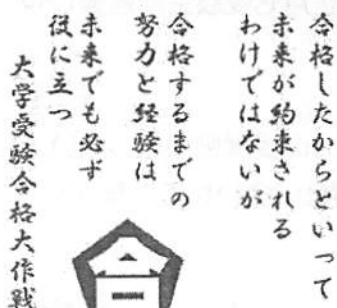 合格したからといって
未来が約束される
わけではないが
合格するまでの
努力と経験は
未来でも必ず
役に立つ
大学受験合格大作戦
合